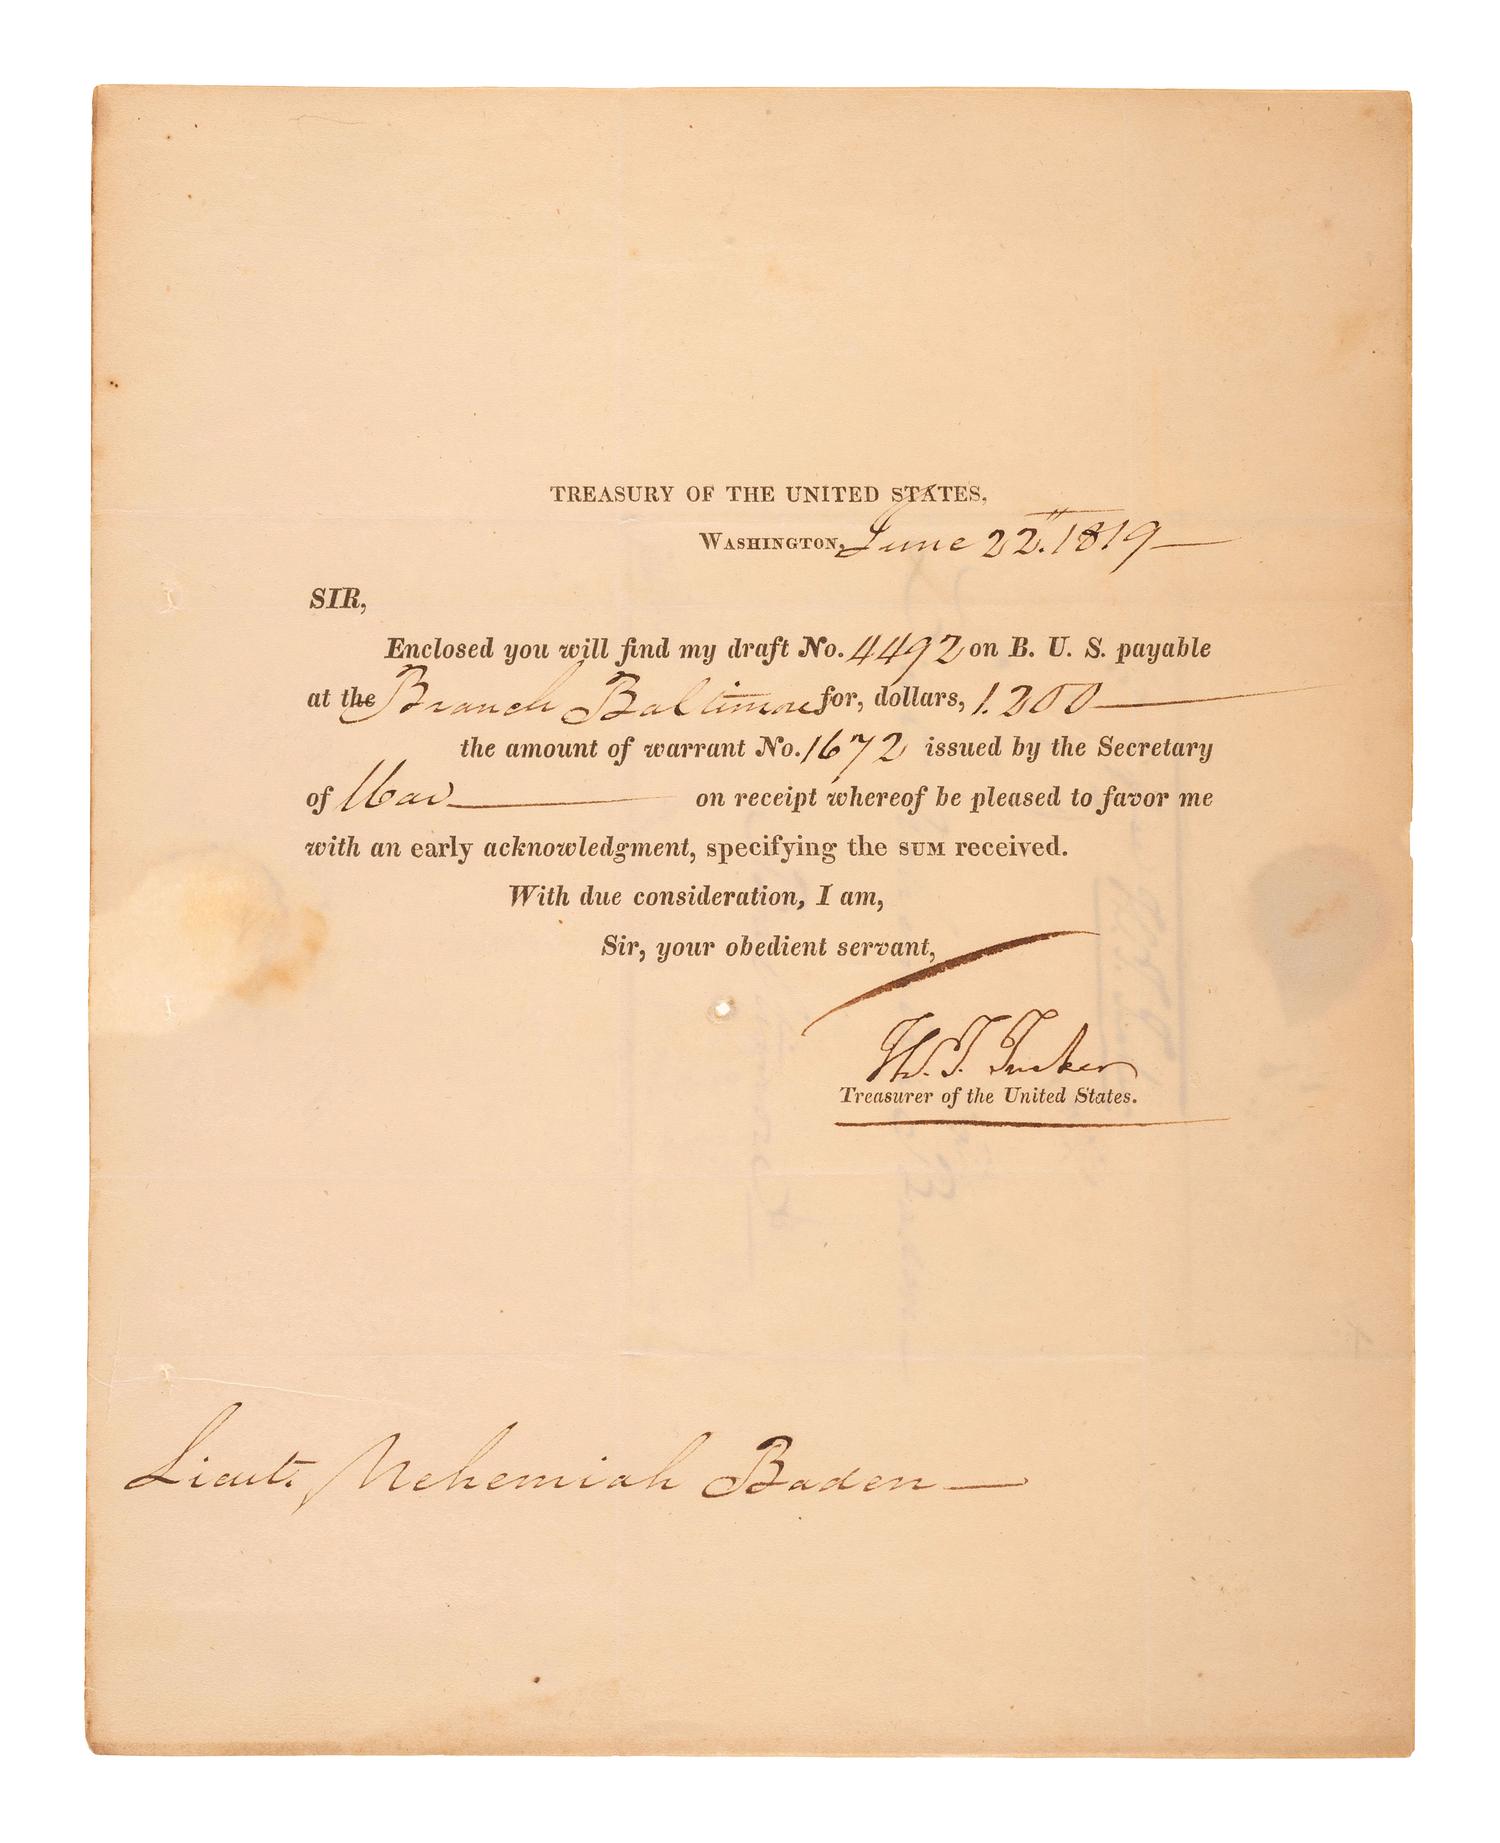 TREASURY OF THE UNITED STATES,
WASHINGTON, June 22.d 1819
SIR,
Enclosed you will find my draft No. 4492 on B. U. S. payable
at the Branch Baltimore for, dollars, 1.200
the amount of warrant No. 1672 issued by the Secretary
of War on receipt whereof be pleased to favor me
with an early acknowledgment, specifying the SUM received.
With due consideration, I am,
Sir, your obedient servant,
Th. T. Tucker
Treasurer of the United States.
Lieut. Nehemiah Baden